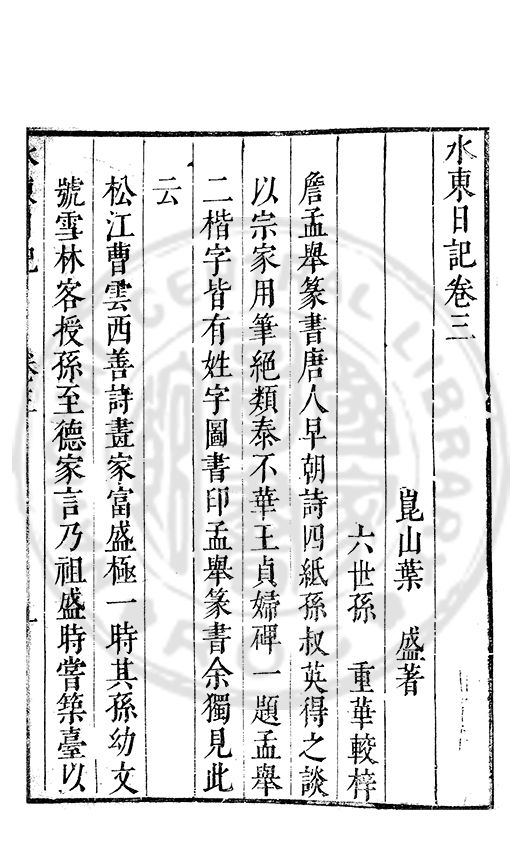 水東日記卷三
崑山葉　盛著
六世孫　重華較梓
詹孟舉篆書唐人早朝詩四紙孫叔英得之談
以宗家用筆絕類泰不華王貞婦碑一題孟舉
二楷字皆有姓字圖書印孟舉篆書余獨見此
云
松江曹雲西善詩畫家富盛極一時其孫幼文
號雪林客授孫至德家言乃祖盛時嘗築臺以
水東日記　卷三　一
CENTRAL LIBRARY